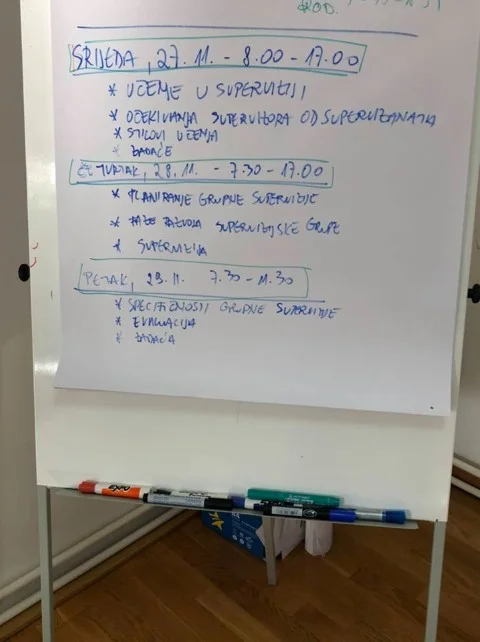 SRIJEDA, 27.11. - 8.00 - 17.00
* UČENJE U SUPERVIZIJI
* OČEKIVANJA SUPERVIZORA OD SUPERVIZANATA
* STILOVI UČENJA
* ZADAĆE
ČETVRTAK, 28.11. - 7.30 - 17.00
* PLANIRANJE GRUPNE SUPERVIZIJE
* FAZE RAZVOJA SUPERVIZIJSKE GRUPE
* SUPERVIZIJA
PETAK, 29.11. 7.30 - 11.30
* SPECIFIČNOSTI GRUPNE SUPERVIZIJE
* EVALUACIJA
* ZADAĆA